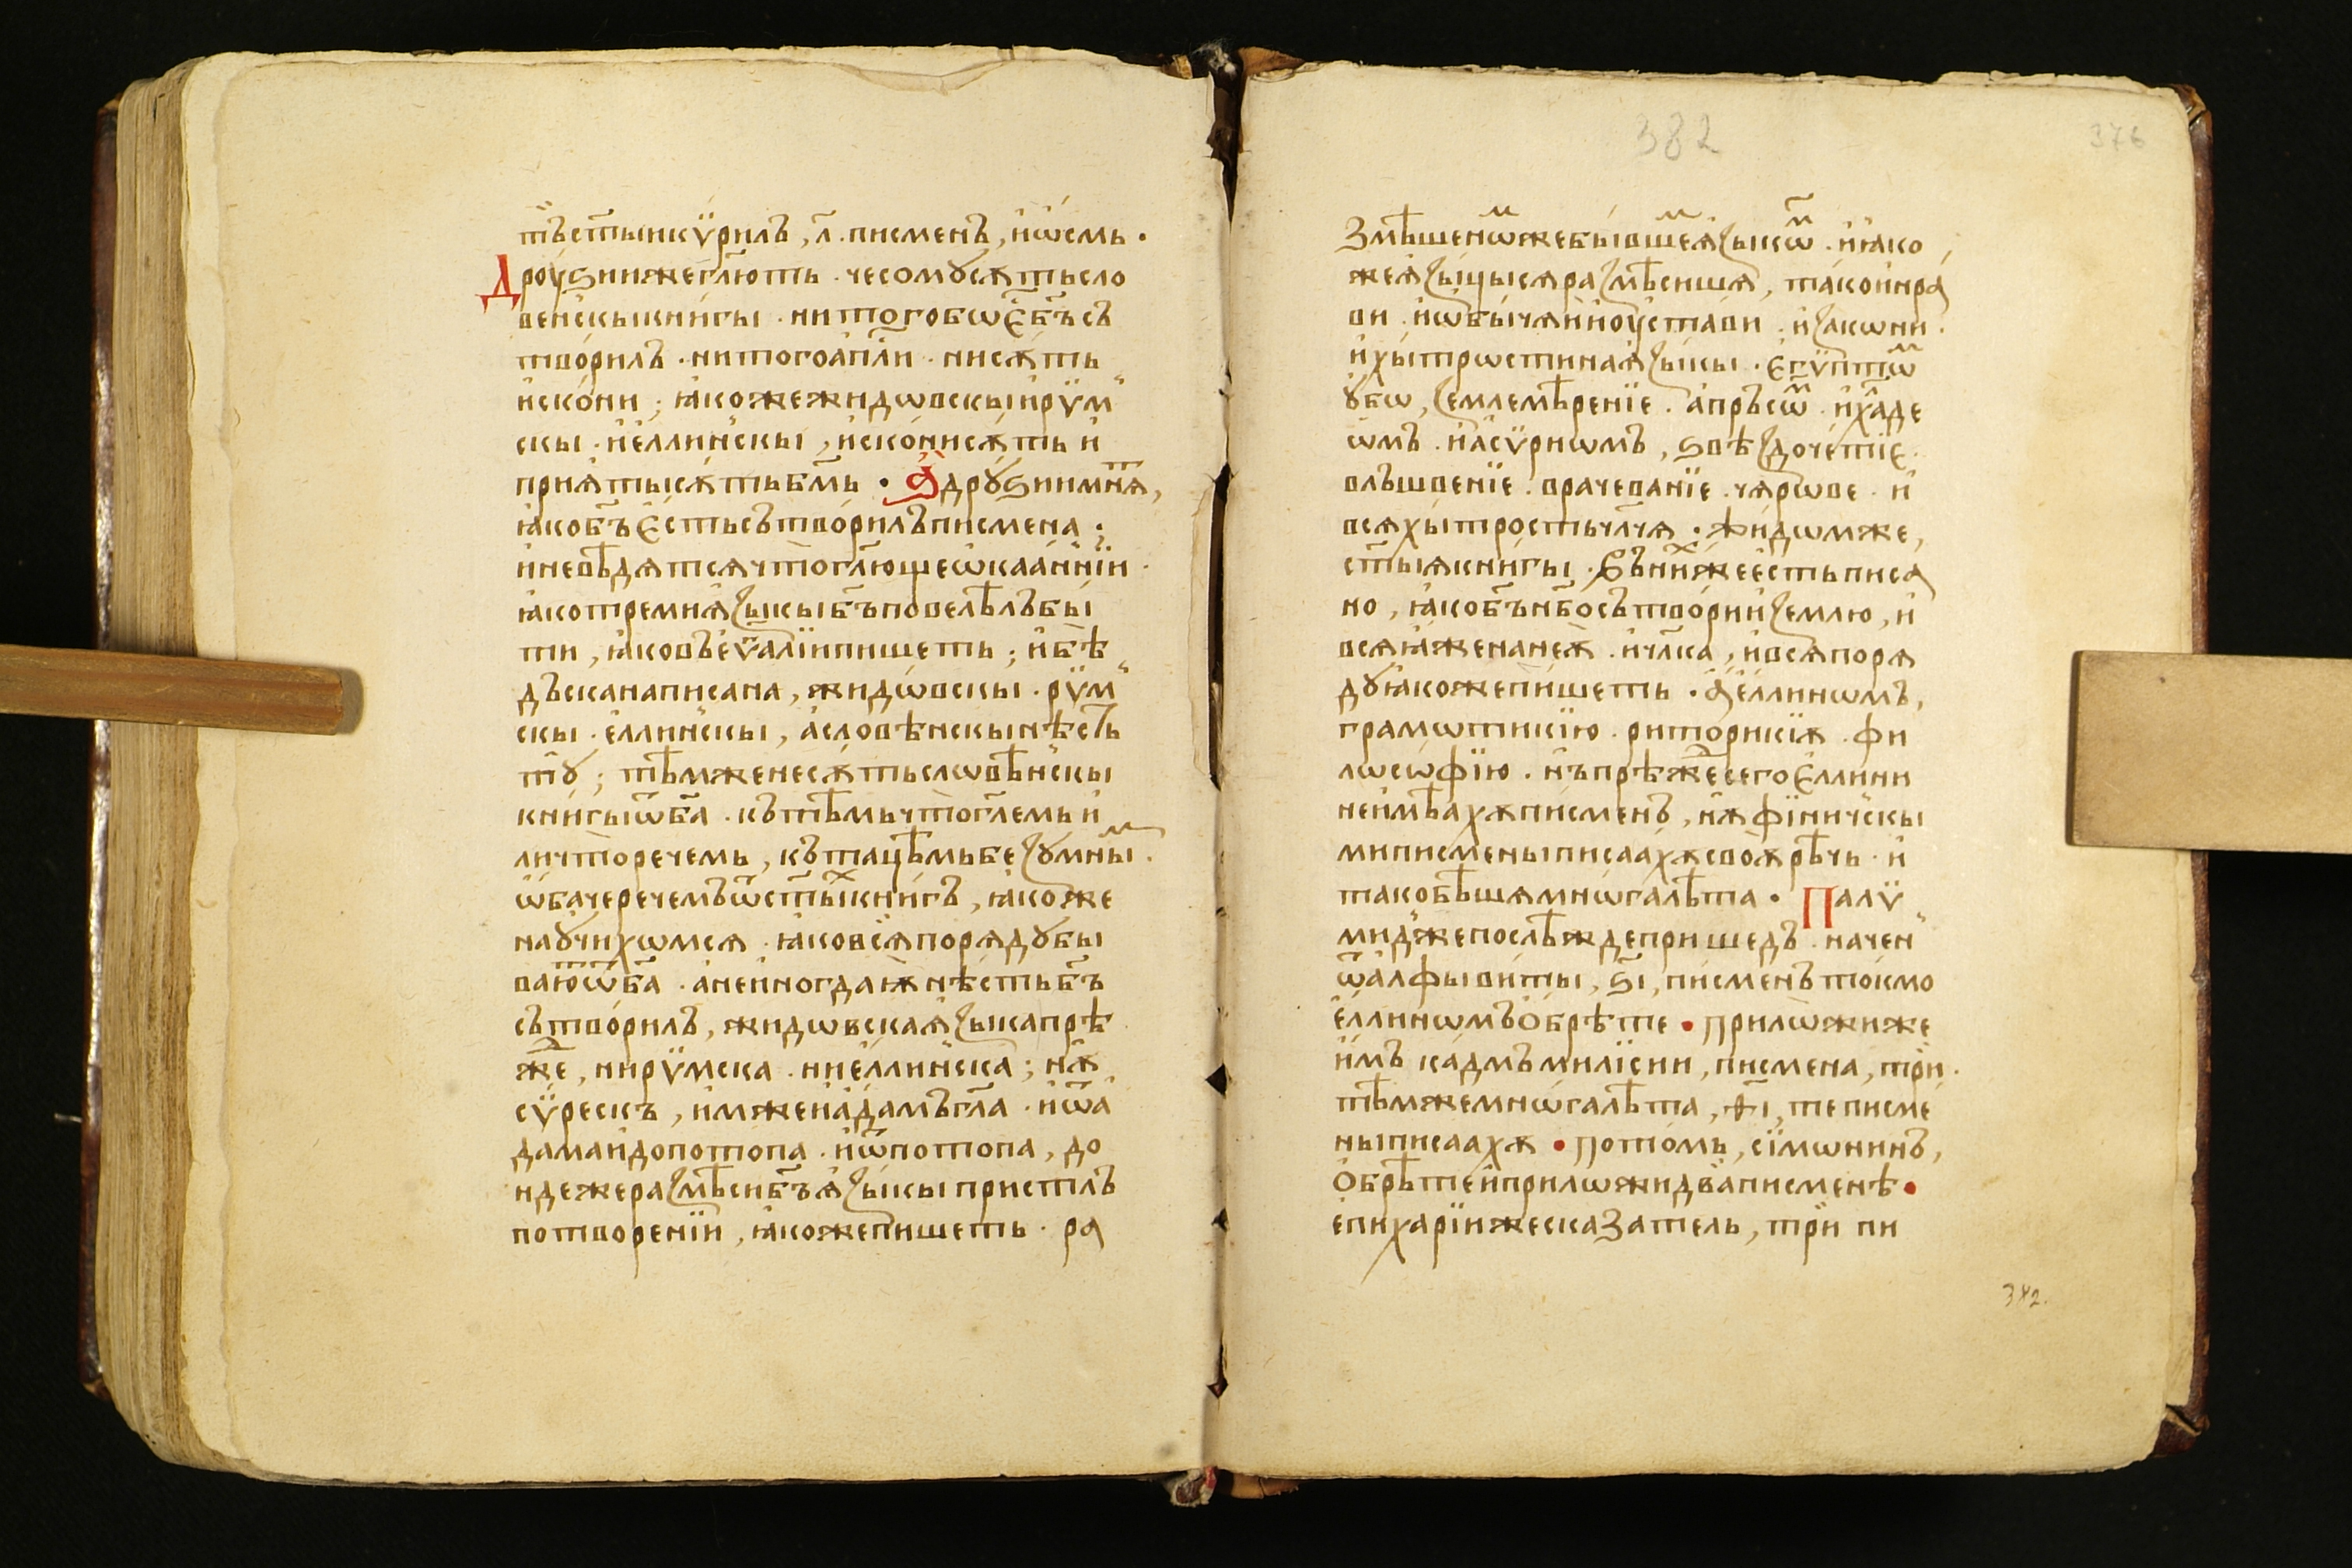 тъ ст҃ыи кѷрилъ, л҃. писменъ, и ѡсмь.
Дроуѕии же гл҃ють. чесомꙋ сѫть сло
венскы книгы. ни того бѡ є҃ бъ҃ съ
творилъ. ни того ап҃ли. ни сѫть
искони; ꙗко же жидѡвскы и рѷм
скы. и еллинскы, искони сѫть и
приѧты сѫть бм҃ь. Ꙗ дрꙋѕии мнѧ҃,
ꙗко бъ҃ єсть сътворилъ писмена;
и не вѣдѧтсѧ что гл҃юще ѡкааннїи.
ꙗко треми ѧзыкы бъ҃ повелѣлъ бы
ти, ꙗко въ еѵа҃лїи пишеть; и бѣ
дъска написана, жидѡвскы. рѷм
скы. еллинскы, а словѣнскы нѣсть
тꙋ; тѣмже не сѫть слѡвѣнскы
книгы ѿ ба҃. къ тѣмь что гл҃емь и
ли что речемь, къ тацѣмь безꙋмны м.
ѡбаче речемъ ѿ ст҃ы х книгъ, ꙗкоже
наꙋчихѡмсѧ. ꙗко всѧ по рѧдꙋ бы
ваю҃ ѿ ба҃. а не иногдаѭ нѣсть бъ҃
сътворилъ, жидѡвска ѧзыка прѣ
же, ни рѷмска. ни еллинска; нѫ
сѷрескъ, имже и адамъ гла҃. и ѿ а
дама и до потопа. и ѿ потопа, до
ндеже размѣси бъ҃ ѧзыкы при стлъ
потворенїи, ꙗкоже пишеть. ра
382
376
Змѣшенѡ м же бывше м ѧзыкѡ м. и ꙗко
же ѧзыцы сѧ размѣсишѧ, тако и нра
ви. и ѡбычѧи и оустави. и закѡни.
и хытрѡсти на ѧзыкы. єгѷптѡ м
ꙋбѡ, землемѣренїе. а прьсѡ м. и х҃аде
ѡмъ. и асѷриѡмъ, ѕвѣздочетїе.
влъшвенїе. врачеванїе. чѧрѡве. и
всѧ хытрость чл҃чѧ. жидѡм же,
ст҃ыѧ книгы. въ ни х же есть писа
но, ꙗко бъ҃ нб҃о сътвори и землю, и
всѧ ꙗже на неѫ. и чл҃ка, и всѧ по рѧ
дꙋ ꙗкоже пишеть. а еллинѡмъ,
грамѡтикїю. риторикїѫ. фи
лѡсѡфїю. нъ прѣже сего єллини
не имѣахѫ писменъ, нѫ фїничскы
ми писмены писаахѫ своѫ рѣчь. и
тако бѣшѧ мнѡга лѣта. Палѷ
мидже послѣжде пришедъ. начен
ѿ алфы и виты, ѕ҃і, писменъ токмо
еллинѡмъ обрѣте. Прилѡжи же
имъ кадмъ милїсии, писмена, три.
тѣмже мнѡга лѣта, ѳ҃і, те писме
ны писаахѫ. Потомь, сїмѡнинъ,
Обрѣте и прилѡжи два писменѣ.
епихарїи же сказатель, три пи
382.